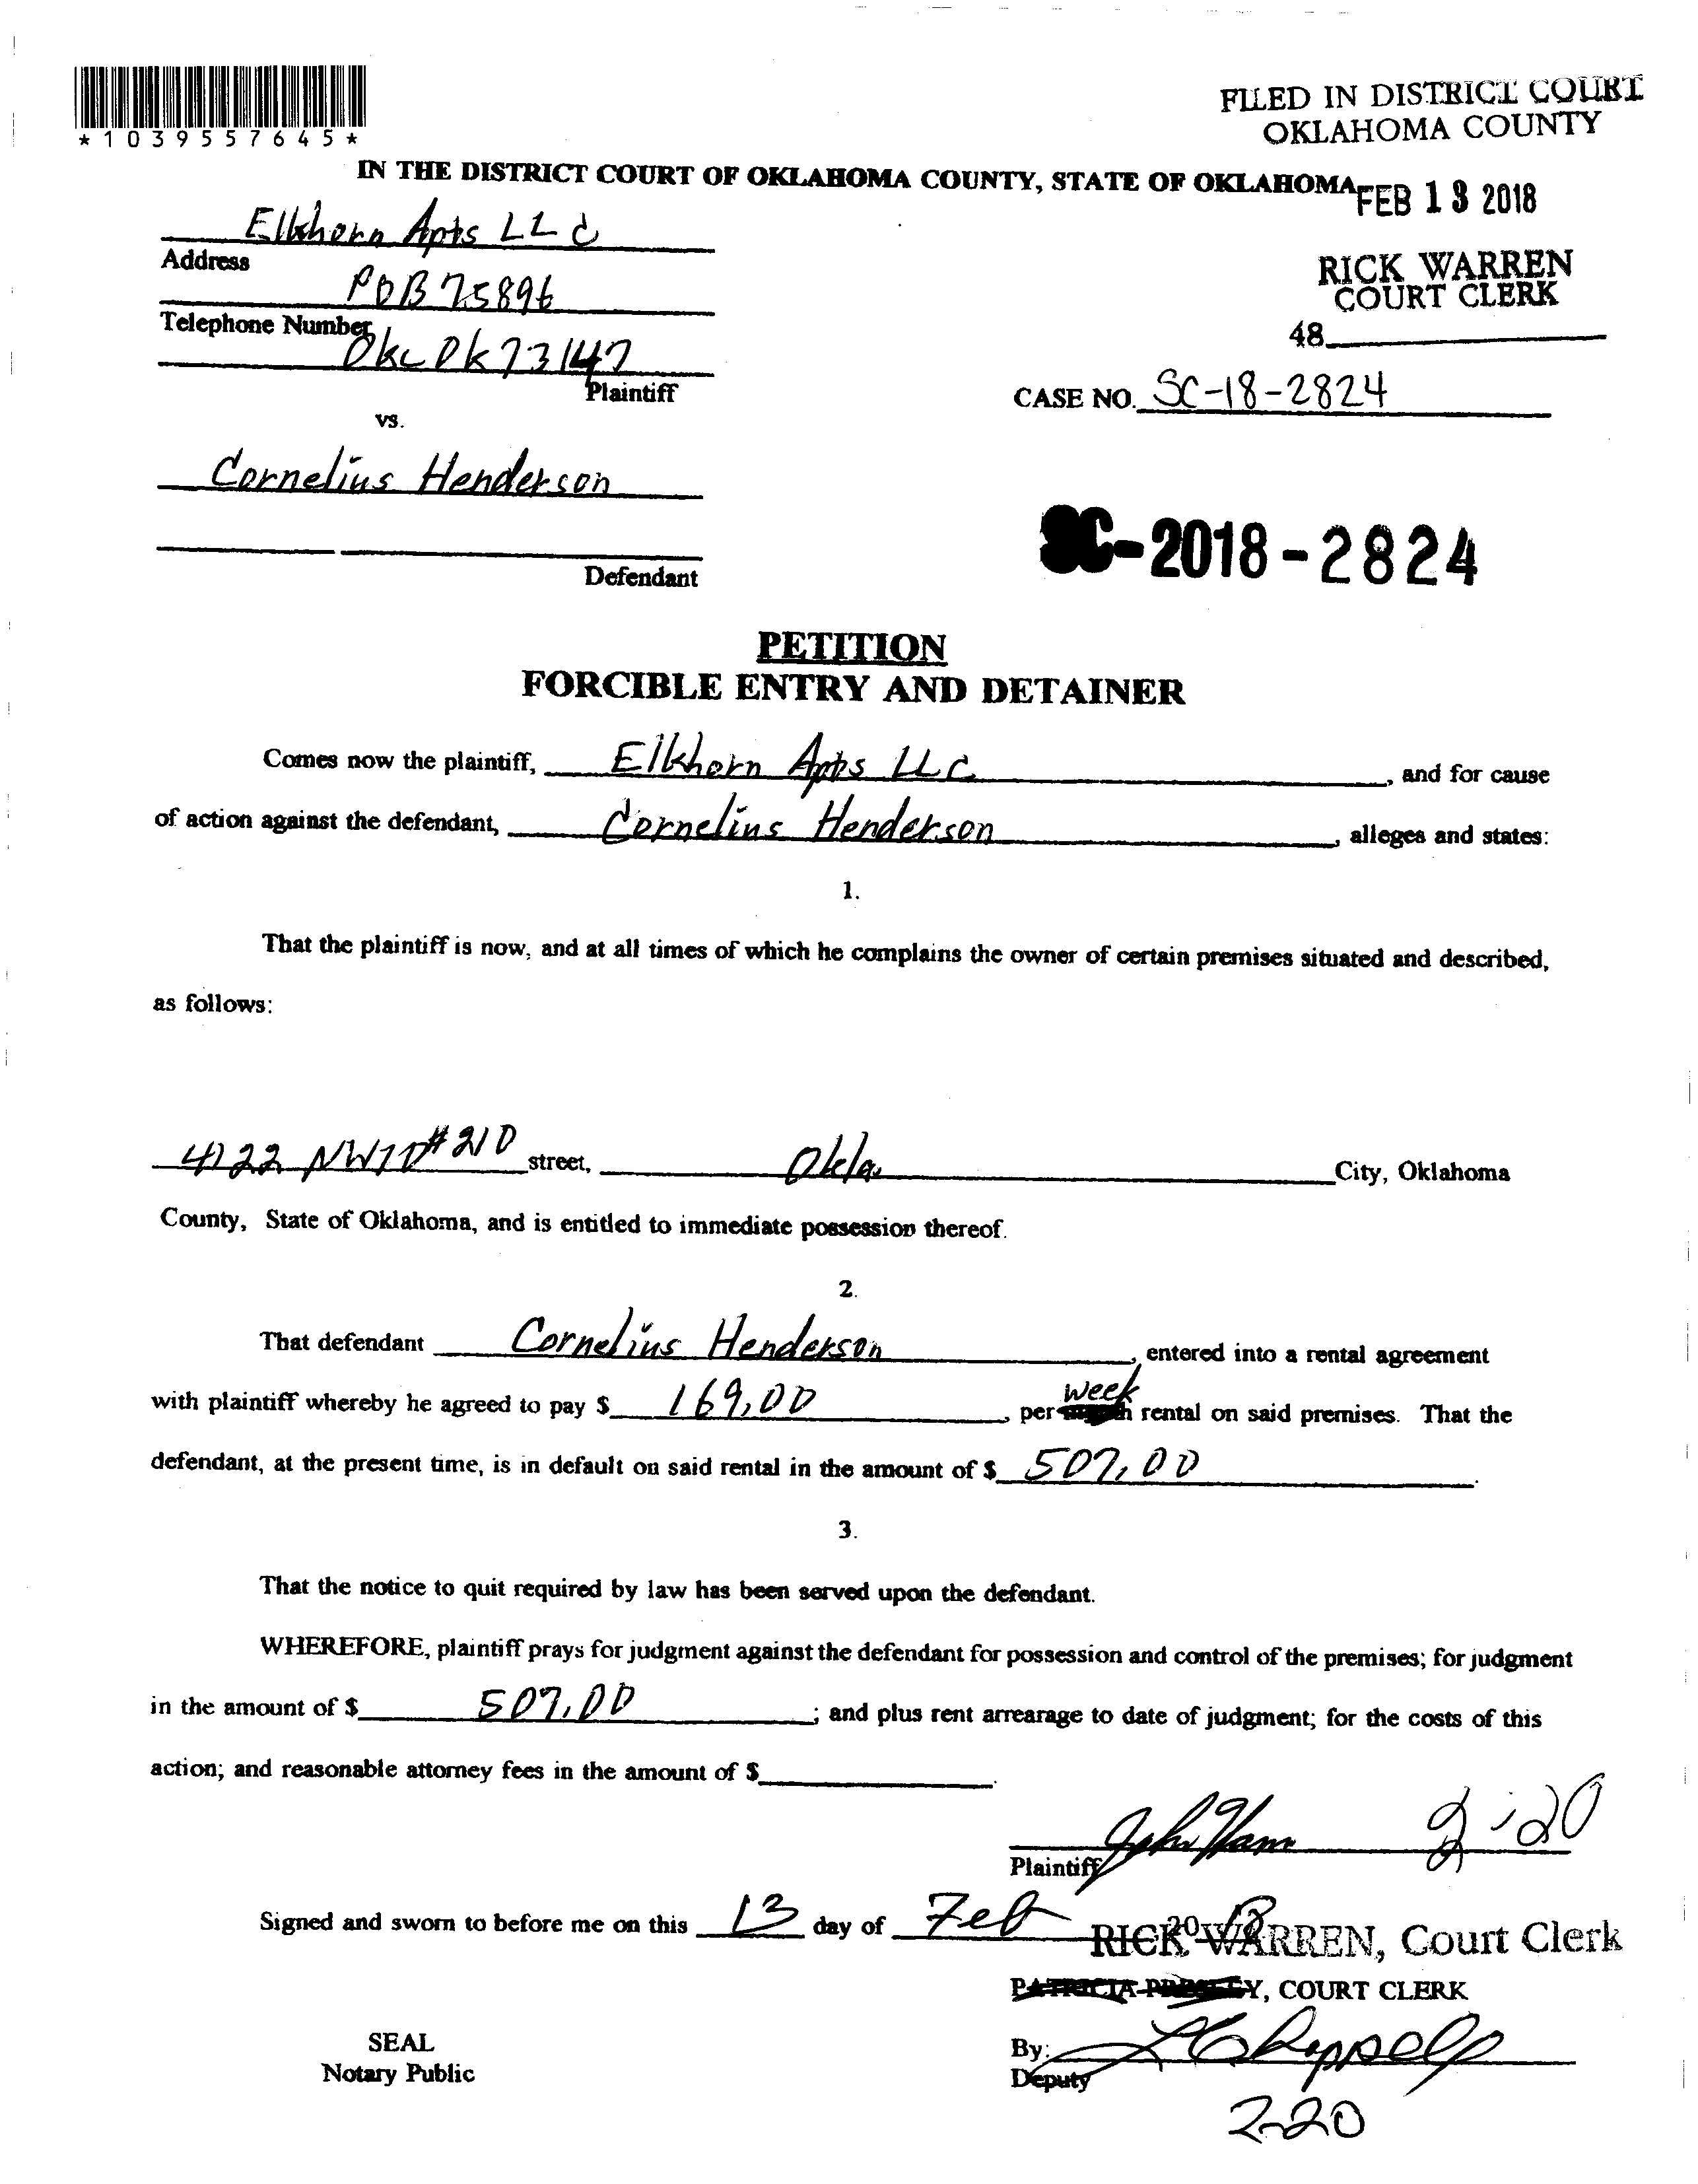 *1039557645*
FILED IN DISTRICT COURT
OKLAHOMA COUNTY
IN THE DISTRICT COURT OF OKLAHOMA COUNTY, STATE OF OKLAHOMA
FEB 13 2018
Elkhorn Apts LLC
Address
POB 75896
RICK WARREN
COURT CLERK
Telephone Number
48
OKC OK 73147
Plaintiff
CASE NO. SC-18-2824
vs.
Cornelius Henderson
SC-2018-2824
Defendant
PETITION
FORCIBLE ENTRY AND DETAINER
Comes now the plaintiff, Elkhorn Apts LLC, and for cause
of action against the defendant, Cornelius Henderson, alleges and states:
1.
That the plaintiff is now, and at all times of which he complains the owner of certain premises situated and described,
as follows:
4122 NW10 #210 street, Okla. City, Oklahoma
County, State of Oklahoma, and is entitled to immediate possession thereof.
2.
That defendant Cornelius Henderson, entered into a rental agreement
with plaintiff whereby he agreed to pay $ 169,00, per week rental on said premises. That the
defendant, at the present time, is in default on said rental in the amount of $ 507,00.
3.
That the notice to quit required by law has been served upon the defendant.
WHEREFORE, plaintiff prays for judgment against the defendant for possession and control of the premises; for judgment
in the amount of $ 507.00; and plus rent arrearage to date of judgment; for the costs of this
action; and reasonable attorney fees in the amount of $.
2-20
Plaintiff
Signed and sworn to before me on this 13 day of Feb 2018
RICK WARREN, Court Clerk
PATRICIA PRESLEY, COURT CLERK
SEAL
By:
Notary Public
Deputy
2-20